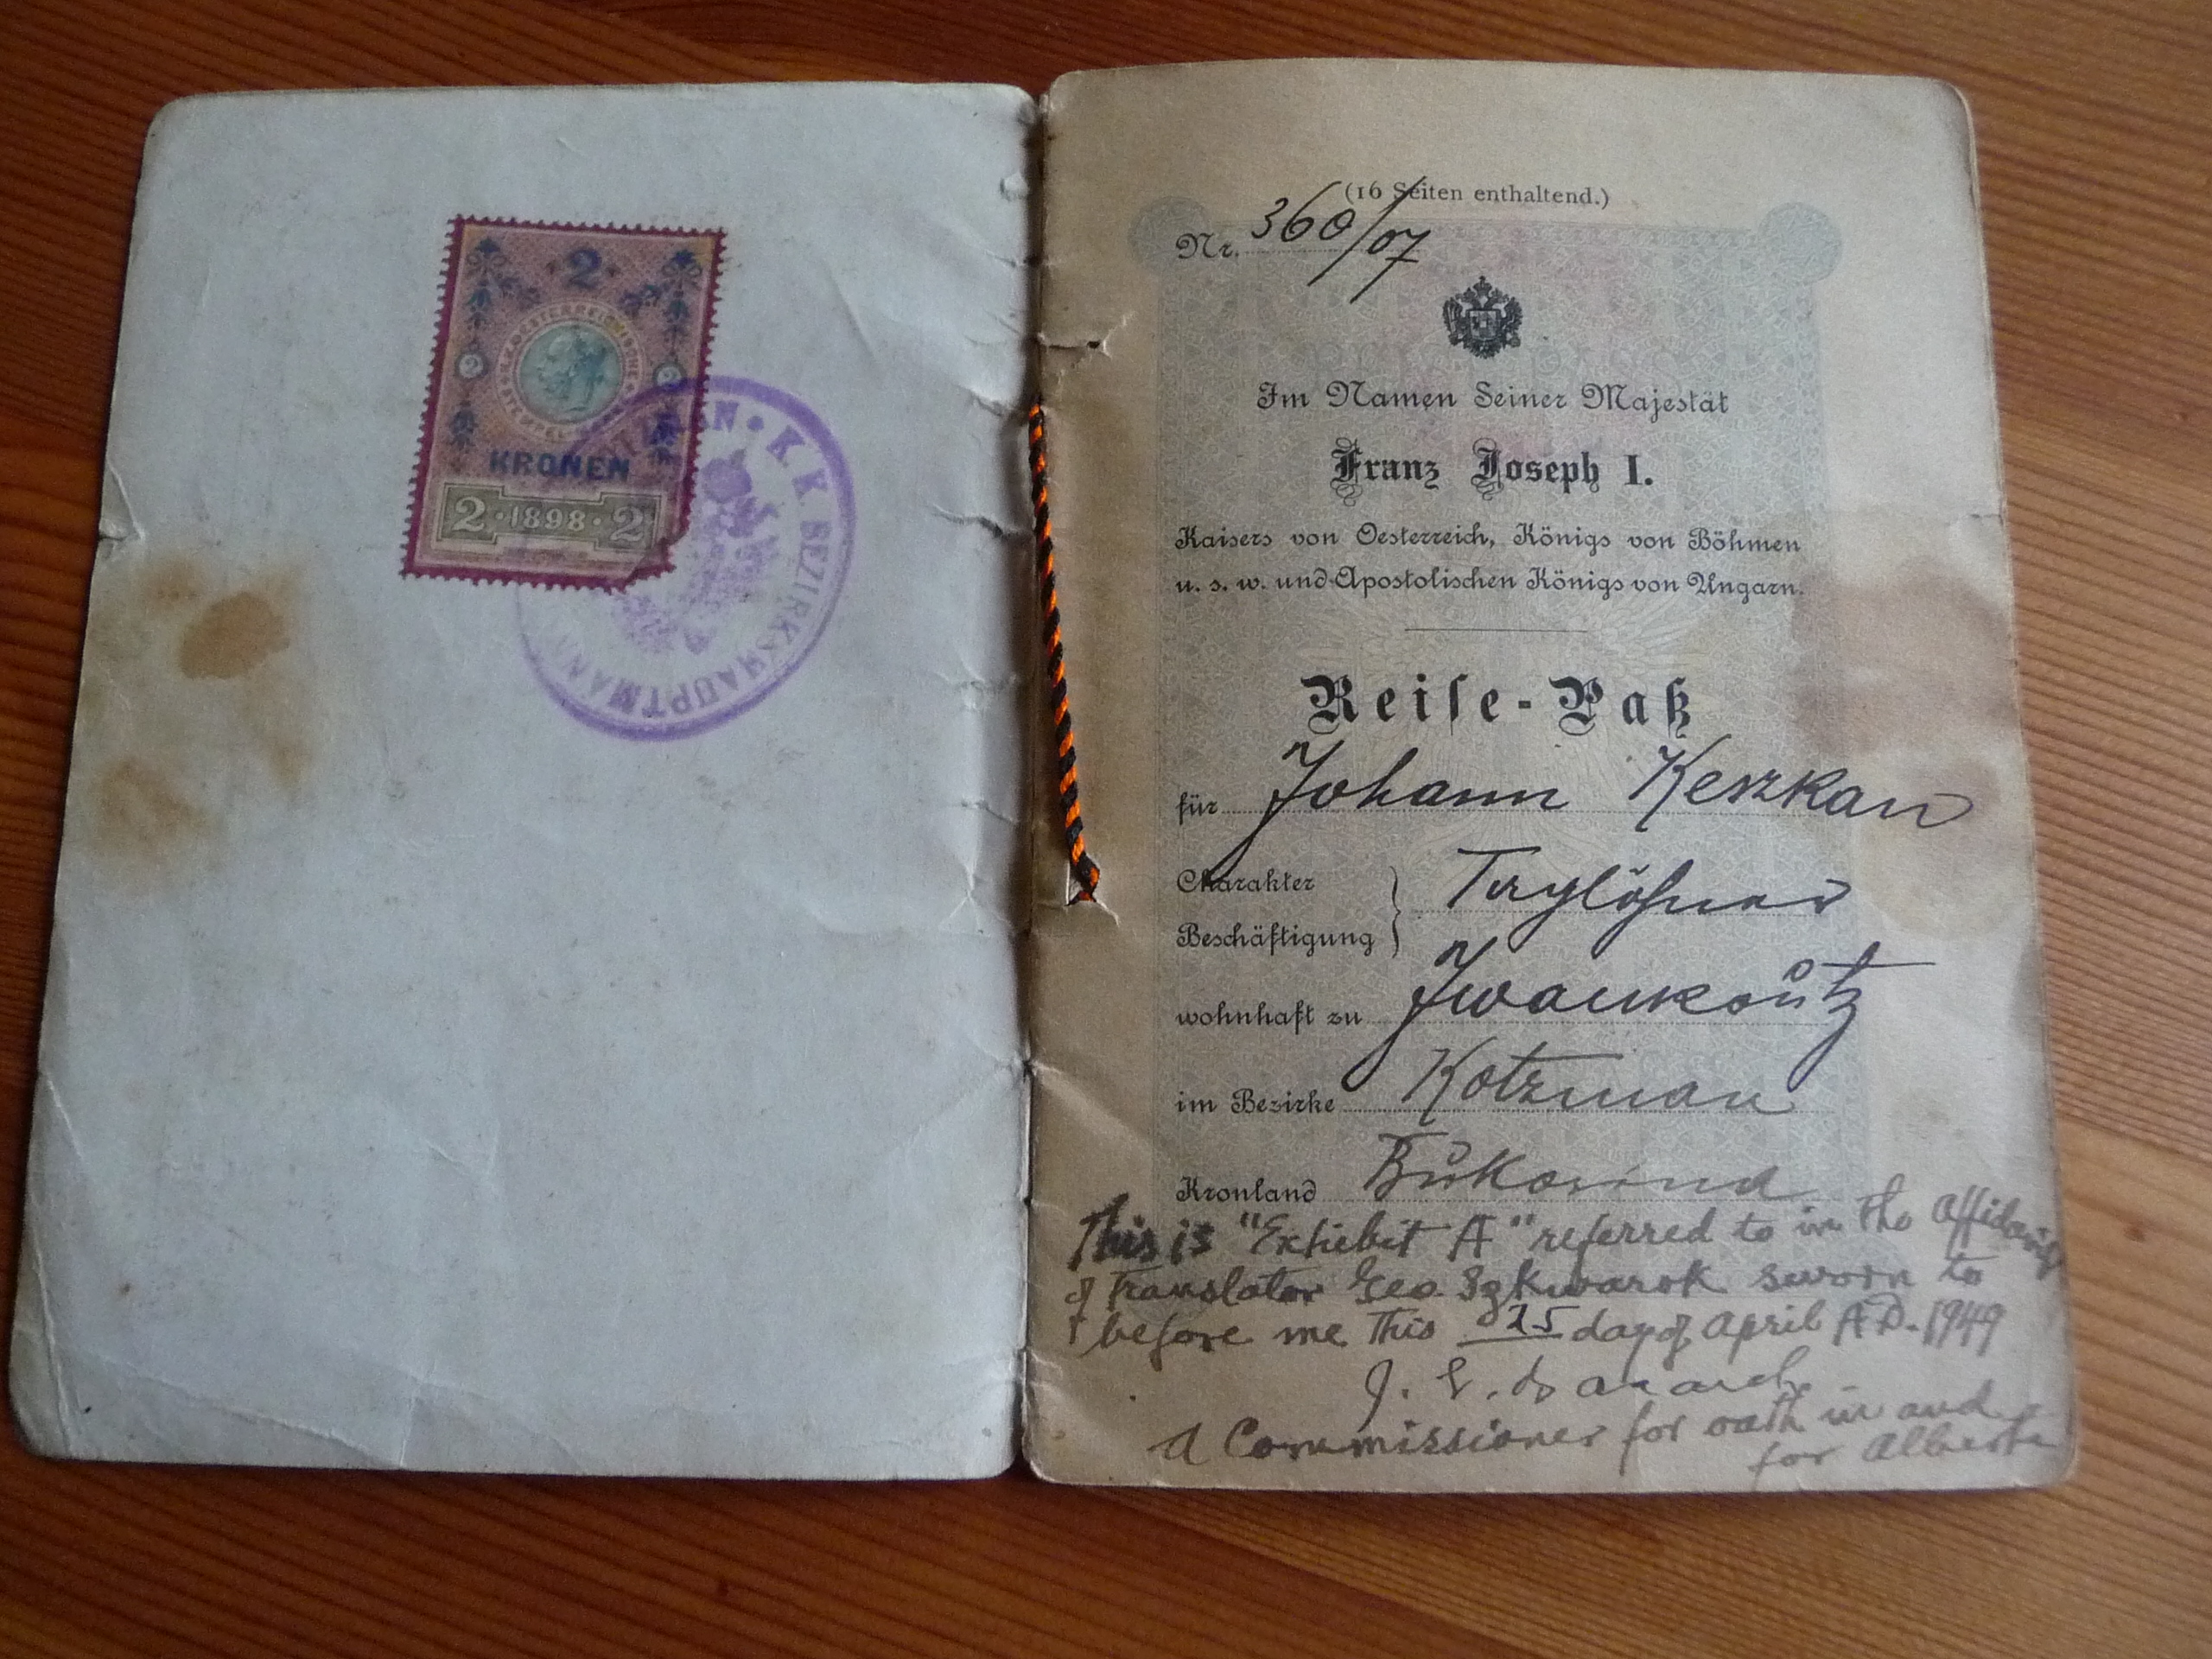 2
K.K. OESTERREICHISCHE
STEMPEL
2 2
KRONEN
2 · 1898 · 2
K.K. BEZIRKSHAUPTMANN
(16 Seiten enthaltend.)
Nr. 360/07
Im Namen Seiner Majestät
Franz Joseph I.
Kaisers von Oesterreich, Königs von Böhmen
u. s. w. und Apostolischen Königs von Ungarn.
Reise-Paß
für Johann Keszkan
Charakter
Beschäftigung } Taglöhner
wohnhaft zu Iwankoutz
im Bezirke Kotzman
Kronland Bukowina
This is "Exhibit A" referred to in the Affidavit
of Translator Geo. sworn to
before me this 25 day of April A.D. 1949
J. E.
A Commissioner for oath in and
for Alberta